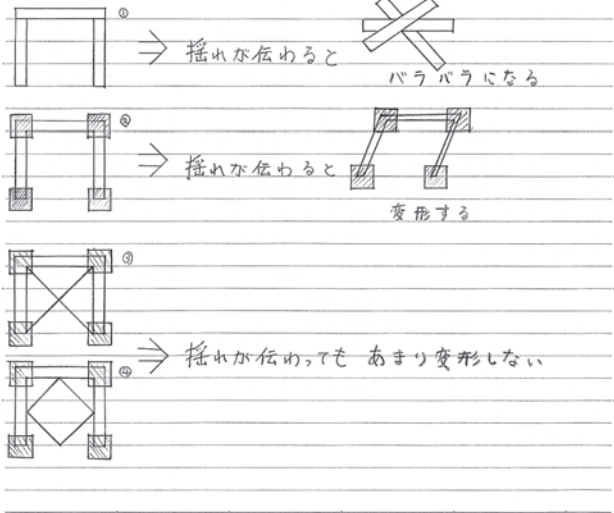 ① ⇒ 揺れが伝わると
バラバラになる
② ⇒ 揺れが伝わると
変形する
③
⇒ 揺れが伝わっても あまり変形しない
④